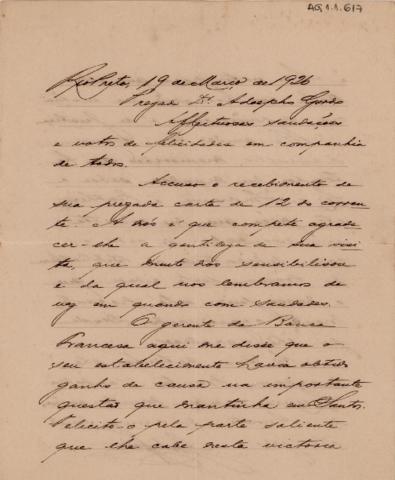 AG.1.1.617
Rio Preto, 19 de Março de 1926
Prezdo Dr. Adolpho Gordo
Affectuosas saudações
e votos de felicidades em companhia
de todos.
Accuso o recebimento de
sua prezada carta de 12 do corren
te. A nós é que compete agrade
cer-lhe a gentileza de sua visi
ta, que muito nos sensibilisou
e da qual nos lembramos de
vez em quando com saudades.
O gerente da Banca
Franceza aqui me disse que o
seu estabelecimento havia obtido
ganho de causa na importante
questão que mantinha em Santos.
Felicito-o pela parte saliente
que lhe cabe nesta victoria